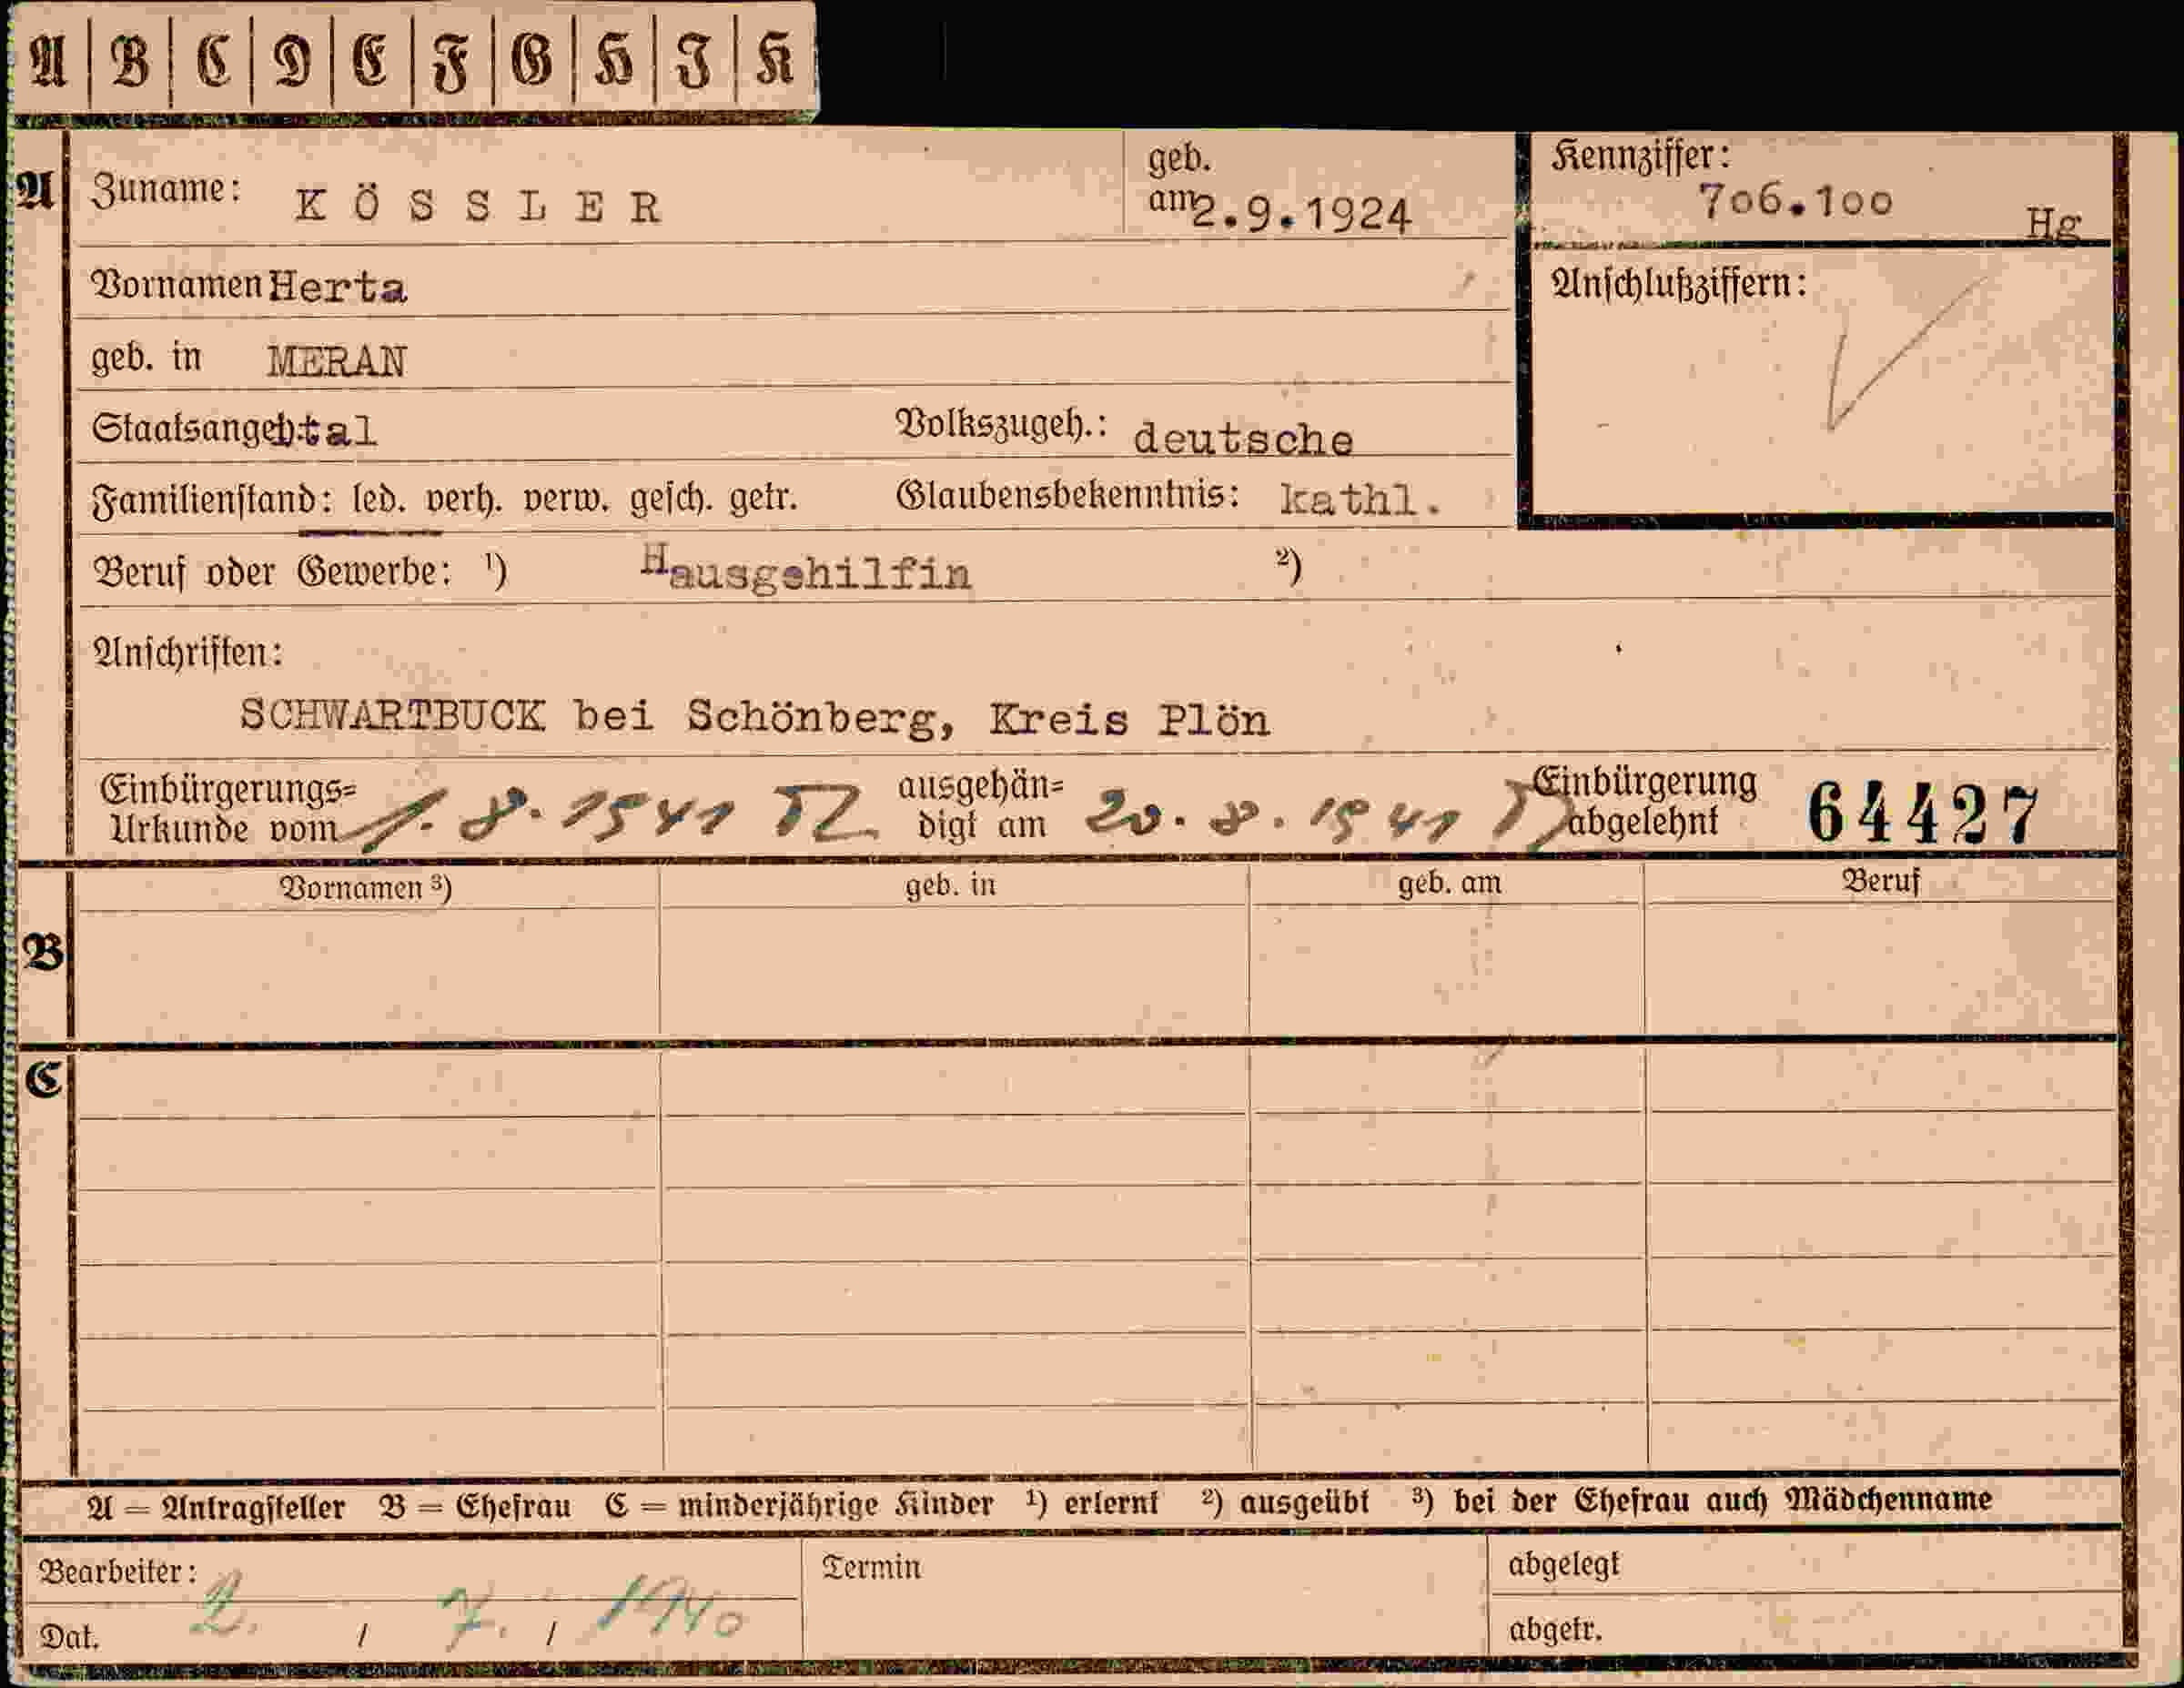 A B C D E F G H I K
A Zuname: KÖSSLER geb. am 2.9.1924 Kennziffer: 706.100 Hg
Vornamen Herta Anschlußziffern:
geb. in MERAN
Staatsangeh. ital Volkszugeh.: deutsche
Familienstand: led. verh. verw. gesch. getr. Glaubensbekenntnis: kathl.
Beruf oder Gewerbe: ¹) Hausgehilfin ²)
Anschriften:
SCHWARTBUCK bei Schönberg, Kreis Plön
Einbürgerungs= ausgehän= Einbürgerung
Urkunde vom 1.8.1941 digt am 20.8.1941 abgelehnt 64427
Vornamen ³) geb. in geb. am Beruf
B
C
A = Antragsteller B = Ehefrau C = minderjährige Kinder ¹) erlernt ²) ausgeübt ³) bei der Ehefrau auch Mädchenname
Bearbeiter: Termin abgelegt
Dat. 2. / 7. / 1940 abgetr.